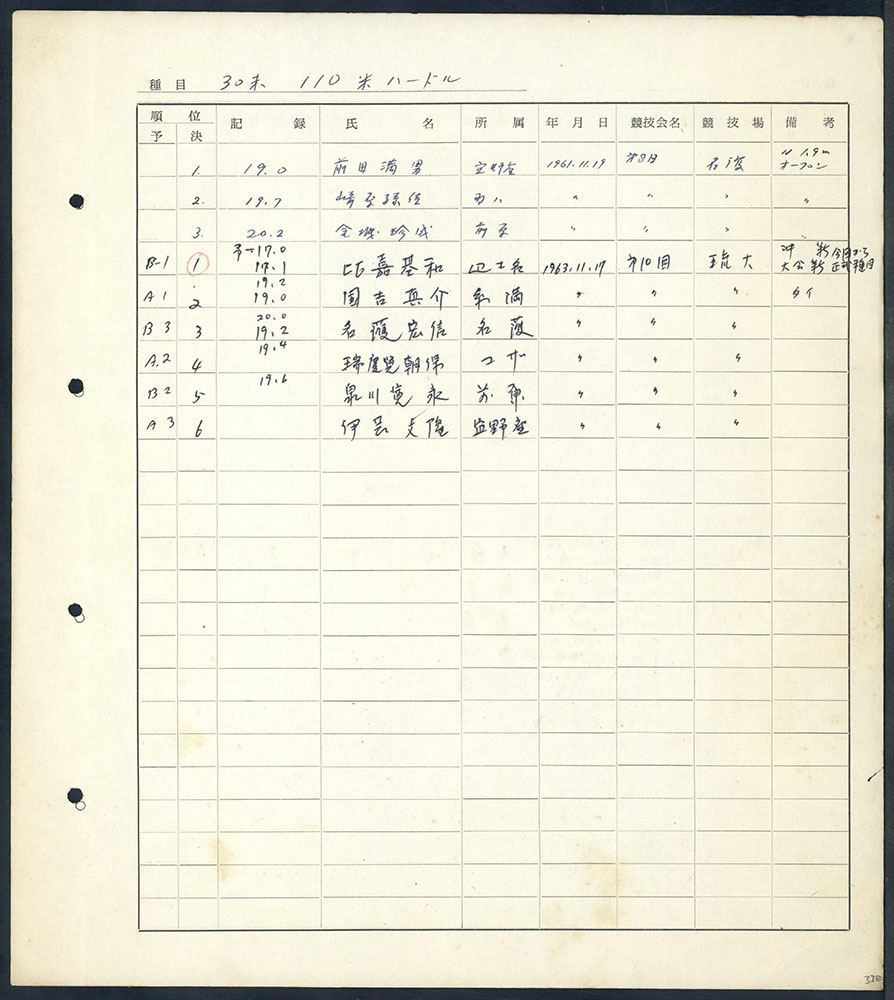 種目 30未 110米ハードル
順位 記録 氏名 所属 年月日 競技会名 競技場 備考
予 決
1. 19.0 前田満男 1961.11.19 第8回 名護 1.9m オープン
2. 19.7 〃 〃 〃 〃
3. 20.2 金城珍成 〃 〃 〃 〃
予-17.0
B-1 1 17.1 比嘉基和 辺土名 1963.11.17 第10回 琉大 沖新 大会新 今回から正式種目
19.2
A1 2 19.0 国吉真介 糸満 〃 〃 〃 タイ
20.0
B3 3 19.2 名護宏信 名護 〃 〃 〃
19.4
A.2 4 瑞慶覧朝保 コザ 〃 〃 〃
19.6
B2 5 泉川寛永 前原 〃 〃 〃
A3 6 伊芸 隆 宜野座 〃 〃 〃